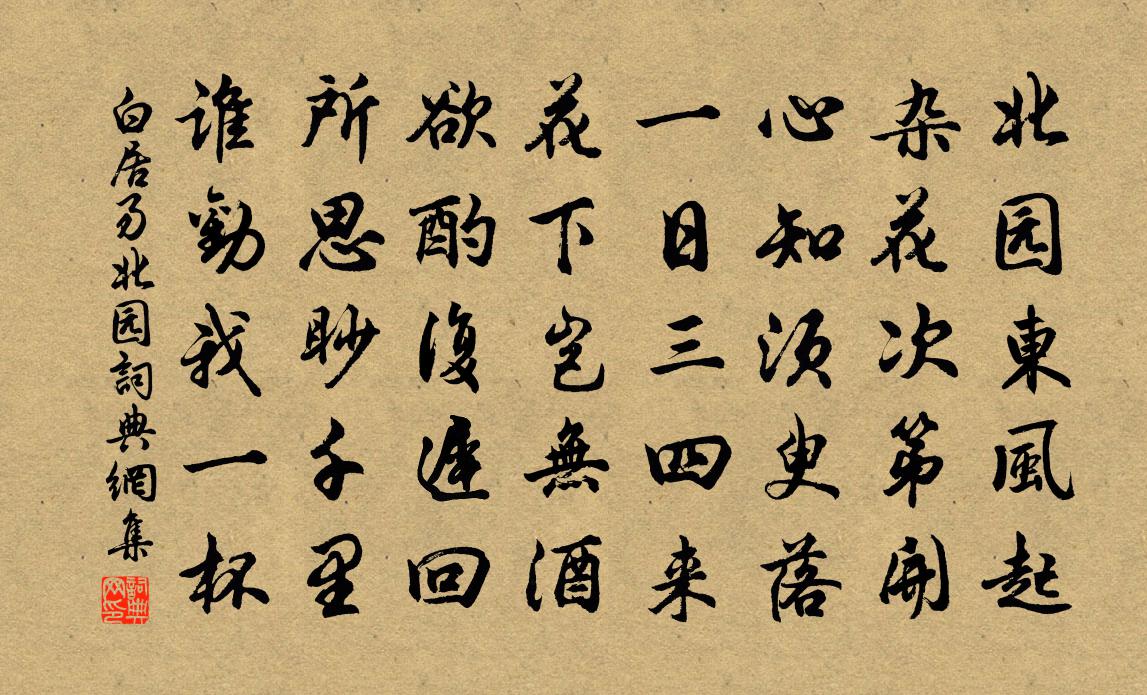 北园東風起
杂花次第開
心知須臾落
一日三四来
花下豈無酒
欲酌復遲回
所思眇千里
誰勸我一杯
白居易北园詞典網集
詞典网印